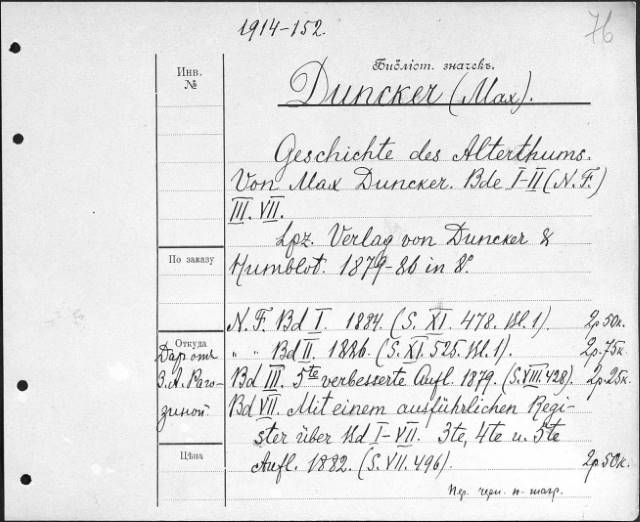 1914-152.
76
Инв.
№
Библіот. значекъ.
Duncker (Max).
Geschichte des Alterthums.
Von Max Duncker. Bde I-II (N. F.)
III. VII.
Lpz. Verlag von Duncker &
Humblot. 1879-86 in 8°.
По заказу
N. F. Bd I. 1884. (S. XI. 478. Bl. 1). 2р. 50к.
" " Bd II. 1886. (S. XI. 525. Bl. 1). 2р. 75к.
Откуда
Даръ отъ
З. А. Раго-
зиной.
Bd III. 5te verbesserte Aufl. 1879. (S. VIII. 428). 2р. 25к.
Bd VII. Mit einem ausführlichen Regi-
ster über Bd I-VII. 3te, 4te u. 5te
Aufl. 1882. (S. VII. 496). 2р. 50к.
Цѣна
Пер. черн. п-шагр.